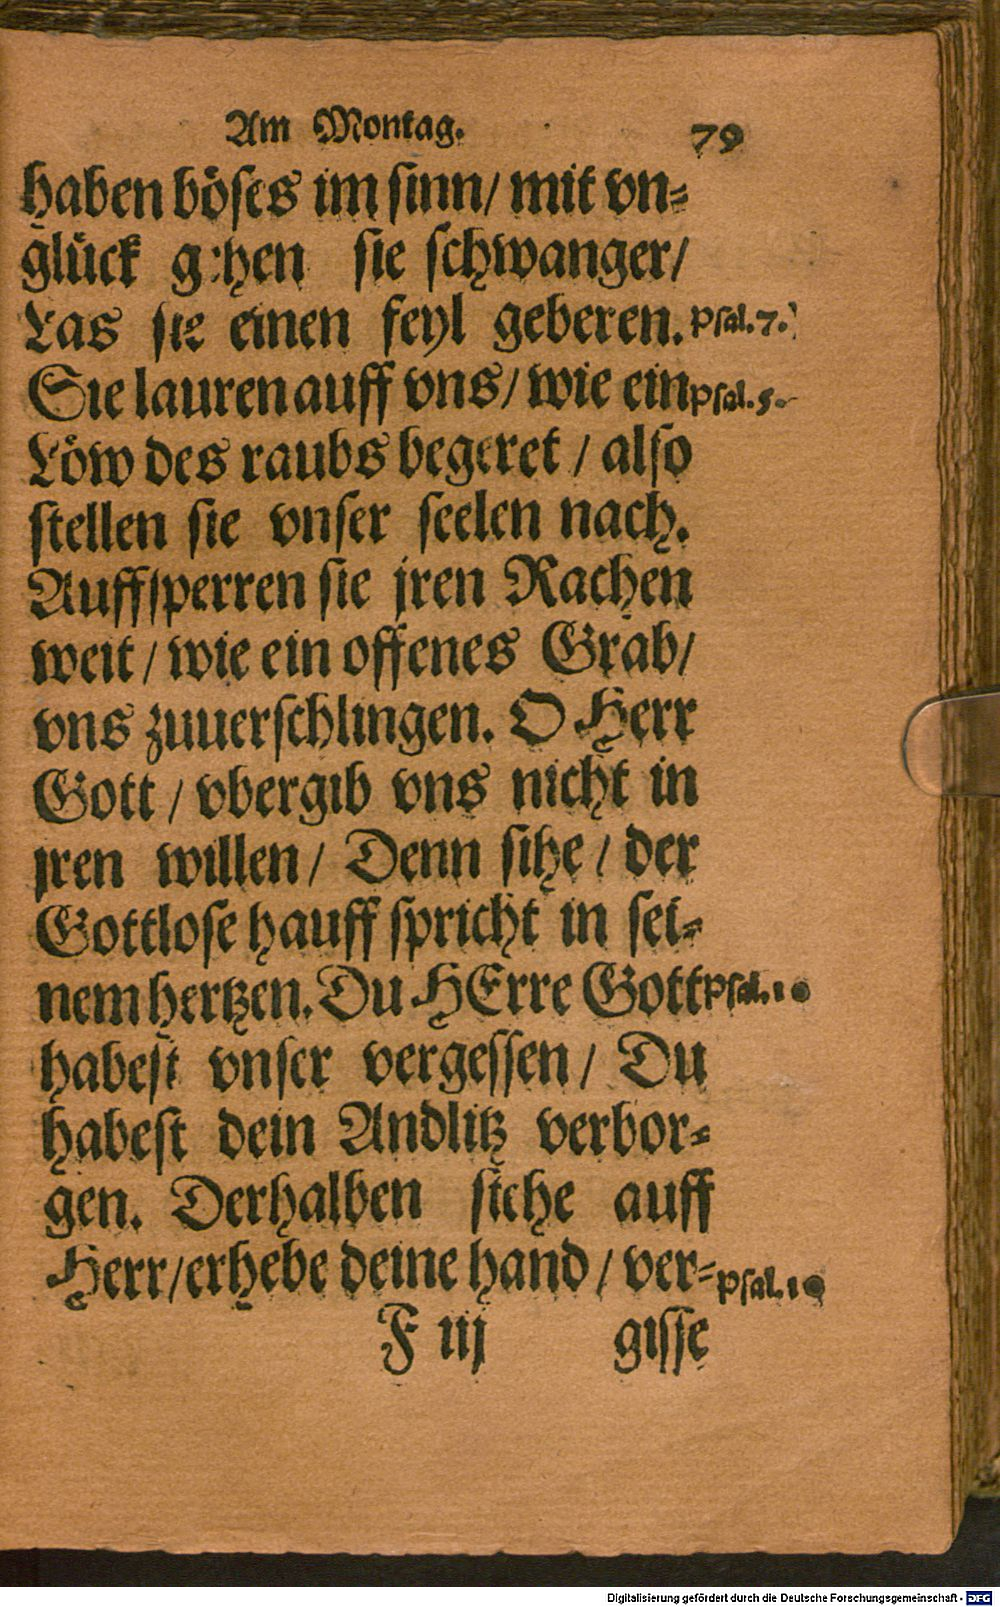 Am Montag. 79
haben böses im sinn/ mit vn-
glück gehen sie schwanger/
Las sie einen feyl geberen. Psal. 7.
Sie lauren auff vns/ wie ein Psal. 5.
Löw des raubs begeret / also
stellen sie vnser seelen nach.
Auffsperren sie jren Rachen
weit / wie ein offenes Grab/
vns zuuerschlingen. O Herr
Gott / vbergib vns nicht in
jren willen/ Denn sihe / der
Gottlose hauff spricht in sei-
nem hertzen. Du HErre Gott Psal. 10
habest vnser vergessen / Du
habest dein Andlitz verbor-
gen. Derhalben siehe auff
Herr/erhebe deine hand / ver- Psal. 10
F iij gisse
Digitalisierung gefördert durch die Deutsche Forschungsgemeinschaft - DFG